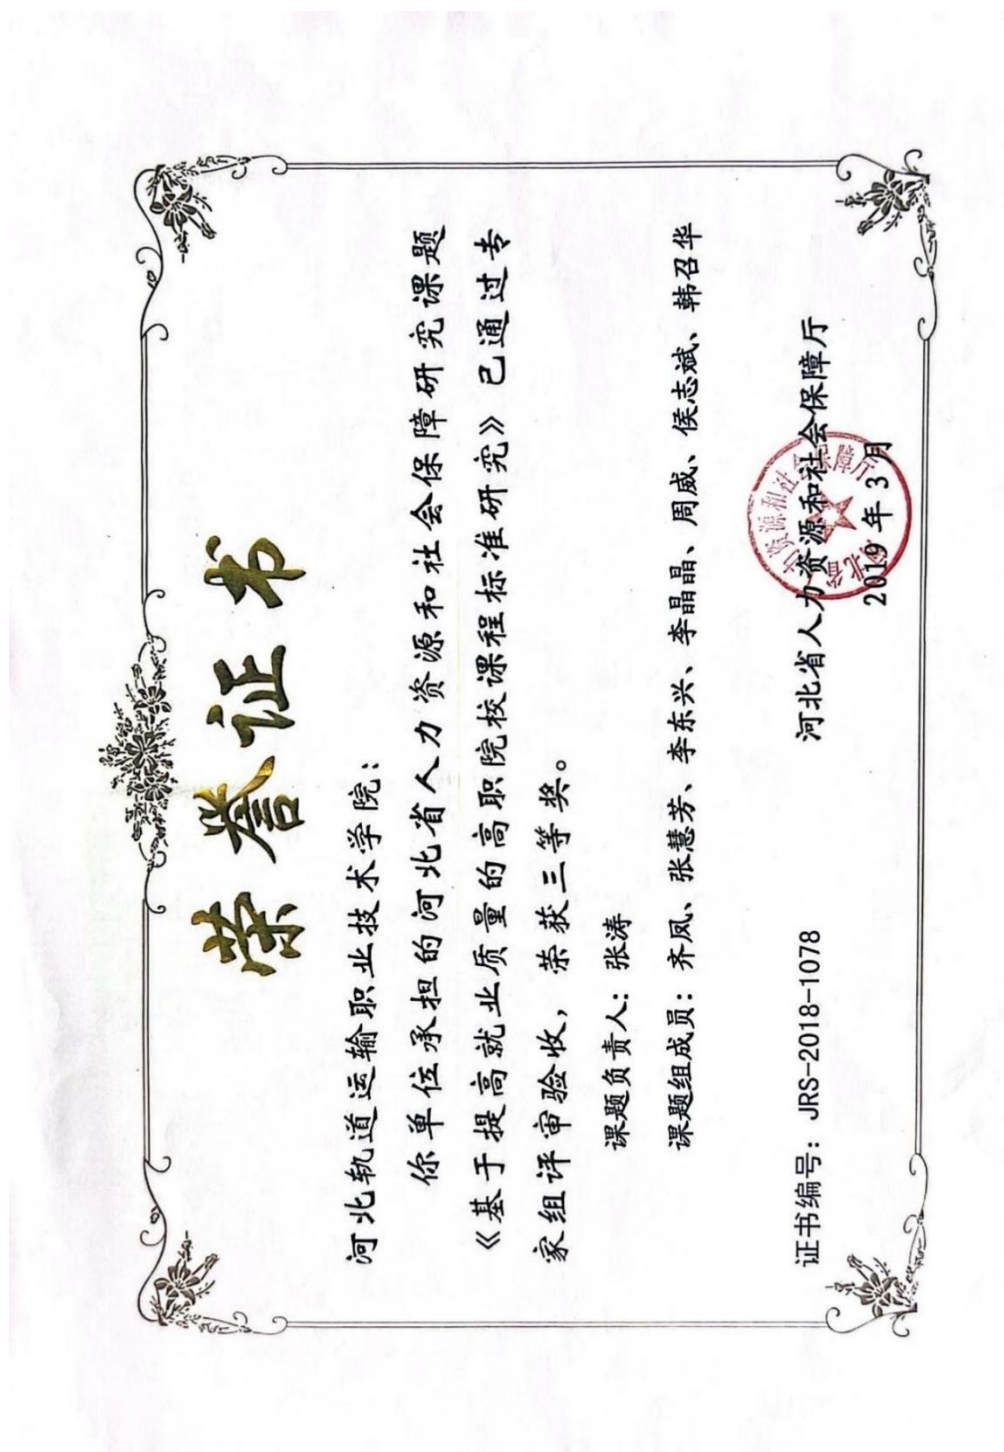 荣誉证书
河北轨道运输职业技术学院：
你单位承担的河北省人力资源和社会保障研究课题
《基于提高就业质量的高职院校课程标准研究》已通过专
家组评审验收，荣获三等奖。
课题负责人：张涛
课题组成员：齐凤、张慧芳、李东兴、李晶晶、周威、侯志斌、韩召华
证书编号：JRS-2018-1078
河北省人力资源和社会保障厅
2019年3月